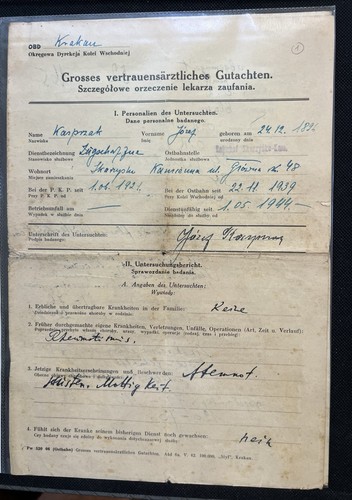 OBD Krakau
Okręgowa Dyrekcja Kolei Wschodniej
1
Grosses vertrauensärztliches Gutachten.
Szczegółowe orzeczenie lekarza zaufania.
I. Personalien des Untersuchten.
Dane personalne badanego.
Name Karprzak Vorname Józef geboren am 24.12.
Nazwisko Imię urodzony dnia
Dienstbezeichnung Zugschaffner Ostbahnstelle
Stanowisko służbowe Jednostka służbowa
Wohnort 48
Miejsce zamieszkania
Bei der P. K. P. seit 1.06.1921 Bei der Ostbahn seit 22.11.1939
Przy P. K. P. od Przy Kolei Wschodniej od
Betriebsunfall am Dienstunfähig seit 1.05.1944
Wypadek w służbie dnia Niezdolny do służby od
Unterschrift des Untersuchten Józef
Podpis badanego
II. Untersuchungsbericht.
Sprawozdanie badania.
A. Angaben des Untersuchten:
Wywiady:
1. Erbliche und übertragbare Krankheiten in der Familie: Keine
Dziedziczne i przenośne choroby w rodzinie:
2. Früher durchgemachte eigene Krankheiten, Verletzungen, Unfälle, Operationen (Art, Zeit u. Verlauf):
Rheumatismus.
3. Jetzige Krankheitserscheinungen und Beschwerden: Atemnot.
Obecne objawy chorobowe i dolegliwości:
Husten. Mattigkeit.
4. Fühlt sich der Kranke seinem bisherigen Dienst noch gewachsen: nein
Czy badany czuje się zdolny do wykonania dotychczasowej służby:
Grosses vertrauensärztliches Gutachten.